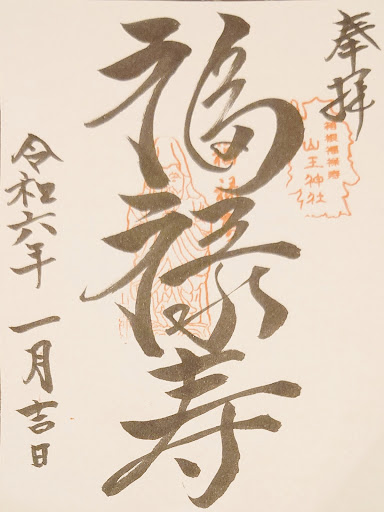 奉拝
山王神社
福禄寿
令和六年一月吉日